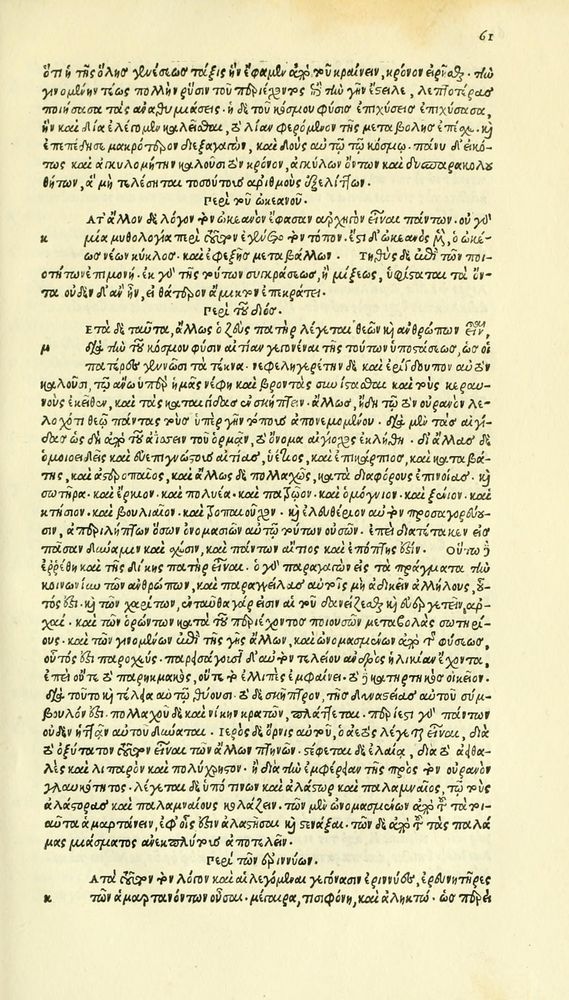 61
ὅτι ἡ τῆς ὅλης γενέσεως τάξις ἣν ἔφαμεν ἀπὸ τοῦ κραίνειν, κρόνον εἰρῆσθαι. τὴν
γινομένην τέως πολλὴν ῥύσιν τοῦ περιέχοντος ἐπὶ τὴν γῆν ἔστειλε, λεπτοτέρας
ποιήσασα τὰς ἀναθυμιάσεις. ἡ δὲ τοῦ κόσμου φύσις ἐπιχύσεις ἐπιχύσασα,
ἣν καὶ δία ἐλέγομεν καλεῖσθαι, τὸ λίαν φερόμενον τῆς μεταβολῆς ἐπέσχε. καὶ
ἐπεπέδησε μακρότερον διεξαγωγὴν, καὶ δοὺς αὐτῷ τῷ κόσμῳ. πάνυ δ' εἰκό-
τως καὶ ἀγκυλομήτην καλοῦσι τὸν κρόνον, ἀγκύλων ὄντων καὶ δυσπαρακολου
θήτων, ἃ μὴ τελέσηται τοσούτους ἀριθμοὺς ἐξελίττων.
Περὶ τοῦ ὠκεανοῦ.
ΑΤ' ἄλλον δὲ λόγον τὸν ὠκεανὸν ἔφασαν ἀρχηγὸν εἶναι πάντων. οὐ γὰρ
κ μία μυθολογία περὶ τοῦτον ἐγένετο τὸν τόπον. ἔστι δ' ὠκεανὸς μὲν, ὁ ὠκέ-
ως νέων κύκλος. καὶ ἐφεξῆς μεταβάλλων. Τηθὺς δὲ ἐπὶ τῶν ποι-
οτήτων ἐπιμονή. ἐκ γὰρ τῆς τούτων συγκράσεως, ἢ μίξεως, ὑφίσταται τὰ ὄν-
τα οὐδὲν δ' ἂν ἦν, εἰ θάτερον ἄμικτον ἐπεκράτει.
Περὶ τοῦ διός.
ΕΤΑ δὲ ταῦτα, ἄλλως ὁ ζεὺς πατὴρ λέγεται θεῶν καὶ ἀνθρώπων εἶναι,
μ διὰ τὸ τὴν τοῦ κόσμου φύσιν αἰτίαν γεγονέναι τῆς τούτων ὑποστάσεως, ὡς οἱ
πατέρες γεννῶσι τὰ τέκνα. νεφεληγερέτην δὲ καὶ ἐρίγδουπον αὐτὸν
καλοῦσι, τῷ ἄνω ὑπὲρ ἡμᾶς νέφη καὶ βροντὰς συνίστασθαι καὶ τοὺς κεραυ-
νοὺς ἐκεῖθεν, καὶ τὰς καταιγίδας ἐνσκήπτειν. ἄλλως, ἤδη τῷ τὸν οὐρανὸν λε-
λογχότι θεῷ παντὸς τοῦ ὑπὲρ γῆν τόπου ἀπονεμομένου. διὰ μὲν τὰς αἰγί-
δας ὡς δὴ ἀπὸ τοῦ ἀΐσσειν τοῦ ὁρμᾶν, τὸ ὄνομα αἰγίοχος ἐκλήθη. δι' ἄλλας δὲ
ὁμοιοειδεῖς καὶ εὐεπιγνώστους αἰτίας, ὑέτιος, καὶ ἐπικάρπιος, καὶ καταιβά-
της, καὶ ἀστροπαῖος, καὶ ἄλλως δὲ πολλαχῶς, κατὰ διαφόρους ἐπινοίας. καὶ
σωτῆρα. καὶ ἕρκιον. καὶ πολιέα. καὶ πατρῷον. καὶ ὁμόγνιον. καὶ ξένιον. καὶ
κτήσιον. καὶ βουλαῖον. καὶ τροπαιοῦχον. καὶ ἐλευθέριον αὐτὸν προσαγορεύου-
σιν, ἀπεριλήπτων ὅσων ὀνομασιῶν αὐτῷ τούτων οὐσῶν. ἐπεὶ διατέτακεν εἰς
πᾶσαν δύναμιν καὶ σχέσιν, καὶ πάντων αἴτιος καὶ ἐπόπτης ἐστίν. Οὕτω δὲ
ἐρρέθη καὶ τῆς δίκης πατὴρ εἶναι. ὁ γὰρ παραγαγὼν εἰς τὰ πράγματα τὴν
κοινωνίαν τῶν ἀνθρώπων, καὶ παραγγείλας αὐτοῖς μὴ ἀδικεῖν ἀλλήλους, οὗ-
τός ἐστι. καὶ τῶν χαρίτων, ἐνταῦθα γάρ εἰσιν αἱ τοῦ δανείζεσθαι καὶ εὐεργετεῖν, ἀρ-
χαί. καὶ τῶν ὁρῶν τῶν κατὰ τοῦ περιέχοντος ποιουσῶν μεταβολὰς σωτηρί-
ους. καὶ τῶν γινομένων ἐπὶ τῆς γῆς ἄλλων, καὶ ὀνομασμένων ἀπὸ τῆς φύσεως,
οὗτός ἐστι παροχεύς. παρεισάγουσι δ' αὐτὸν τελείου ἀνδρὸς ἡλικίαν ἔχοντα,
ἐπεὶ οὔτε τὸ παρηκμακὸς, οὔτε τὸ ἐλλιπὲς ἐμφαίνει. τὸ δὲ κατηρτηκὸς οἰκεῖον.
διὰ τοῦτο καὶ τέλεια αὐτῷ θύουσι. τὸ δὲ σκῆπτρον, τῆς δυναστείας αὐτοῦ σύμ-
βολόν ἐστι. πολλαχοῦ δὲ καὶ νίκην κρατῶν, πλάττεται. περίεστι γὰρ πάντων
οὐδὲν ἡττᾶν αὐτοῦ δύναται. Ἱερὸς δὲ ὄρνις αὐτοῦ, ὁ ἀετὸς λέγεται εἶναι, διὰ
τὸ ὀξύτατον τοῦτον εἶναι τῶν ἄλλων πτηνῶν. στέφεται δὲ ἐλαίᾳ, διὰ τὸ ἀειθα-
λὲς καὶ λιπαρὸν καὶ πολύχρηστον. ἢ διὰ τὴν ἐμφέρειαν τῆς πρὸς τὸν οὐρανὸν
γλαυκότητος. λέγεται δὲ ὑπό τινων καὶ ἀλάστωρ καὶ παλαμναῖος, τῷ τοὺς
ἀλάστορας καὶ παλαμναίους κολάζειν. τῶν μὲν ὀνομασμένων ἀπὸ τοῦ τὰ τοι-
αῦτα ἁμαρτάνειν, ἐφ' οἷς ἐστὶν ἀλαστῆσαι καὶ στενάξαι. τῶν δὲ ἀπὸ τοῦ τὰς παλά
μας μιάσματος ἀνεκπλύτου ἀποτελεῖν.
Περὶ τῶν ἐριννύων.
ΑΤΑ τοῦτον τὸν λόγον καὶ αἱ λεγόμεναι γεγόνασιν ἐριννύες, ἐρευνητῆρες
κ τῶν ἁμαρτανόντων οὖσαι. μέγαιρα, τισιφόνη, καὶ ἀληκτώ. ὡς περεὶ